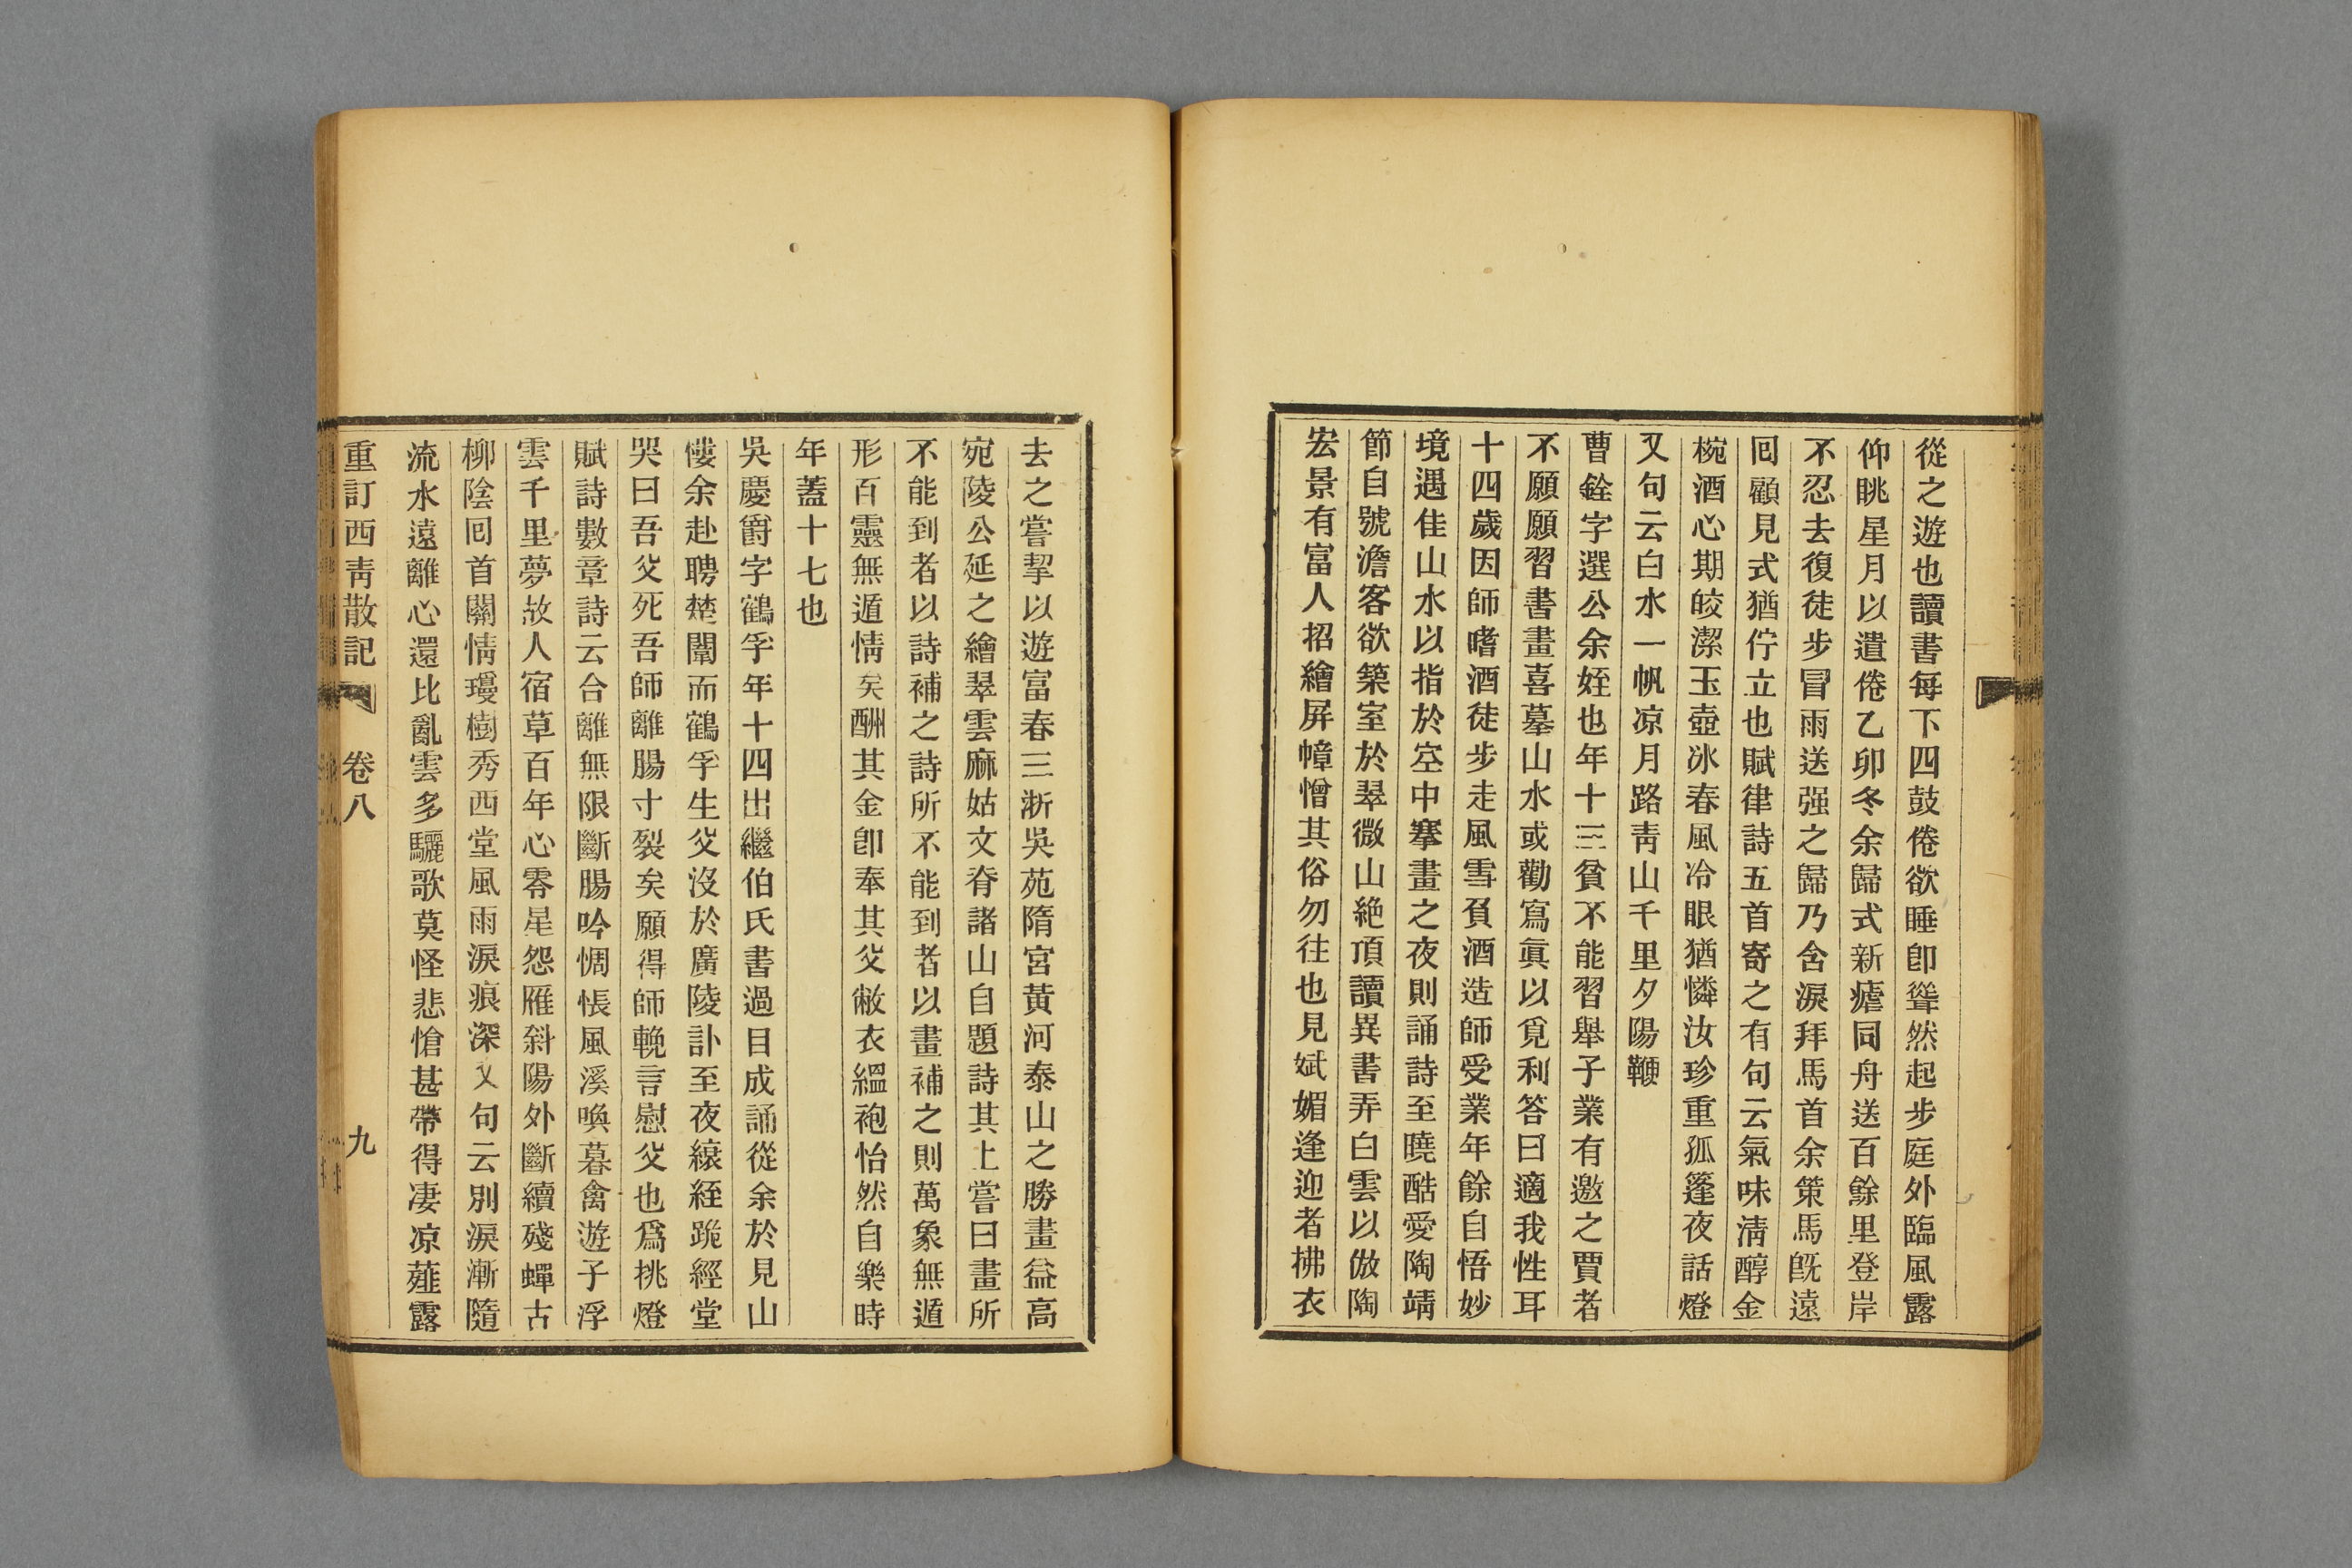 從之遊也讀書每下四鼓倦欲睡卽聳然起步庭外臨風露
仰眺星月以遣倦乙卯冬余歸式新瘧同舟送百餘里登岸
不忍去復徒步冒雨送强之歸乃含淚拜馬首余策馬旣遠
囘顧見式猶佇立也賦律詩五首寄之有句云氣味淸醇金
椀酒心期皎潔玉壺冰春風冷眼猶憐汝珍重孤篷夜話燈
又句云白水一帆凉月路靑山千里夕陽鞭
曹銓字選公余姪也年十三貧不能習舉子業有邀之賈者
不願願習書畫喜摹山水或勸寫眞以覓利答曰適我性耳
十四歲因師嗜酒徒步走風雪負酒造師受業年餘自悟妙
境遇佳山水以指於空中搴畫之夜則誦詩至曉酷愛陶靖
節自號澹客欲築室於翠微山絶頂讀異書弄白雲以倣陶
宏景有富人招繪屏幛憎其俗勿往也見斌媚逢迎者拂衣
去之嘗挈以遊富春三浙吳苑隋宮黃河泰山之勝畫益高
宛陵公延之繪翠雲麻姑文脊諸山自題詩其上嘗曰畫所
不能到者以詩補之詩所不能到者以畫補之則萬象無遁
形百靈無遁情矣酬其金卽奉其父敝衣縕袍怡然自樂時
年蓋十七也
吳慶爵字鶴孚年十四出繼伯氏書過目成誦從余於見山
僂余赴聘楚闈而鶴孚生父沒於廣陵訃至夜縗絰跪經堂
哭曰吾父死吾師離腸寸裂矣願得師輓言慰父也爲挑燈
賦詩數章詩云合離無限斷腸吟惆悵風溪喚暮禽遊子浮
雲千里夢故人宿草百年心零星怨雁斜陽外斷續殘蟬古
柳陰囘首關情瓊樹秀西堂風雨淚痕深又句云別淚漸隨
流水遠離心還比亂雲多驪歌莫怪悲愴甚帶得凄凉薤露
重訂西靑散記 卷八 九